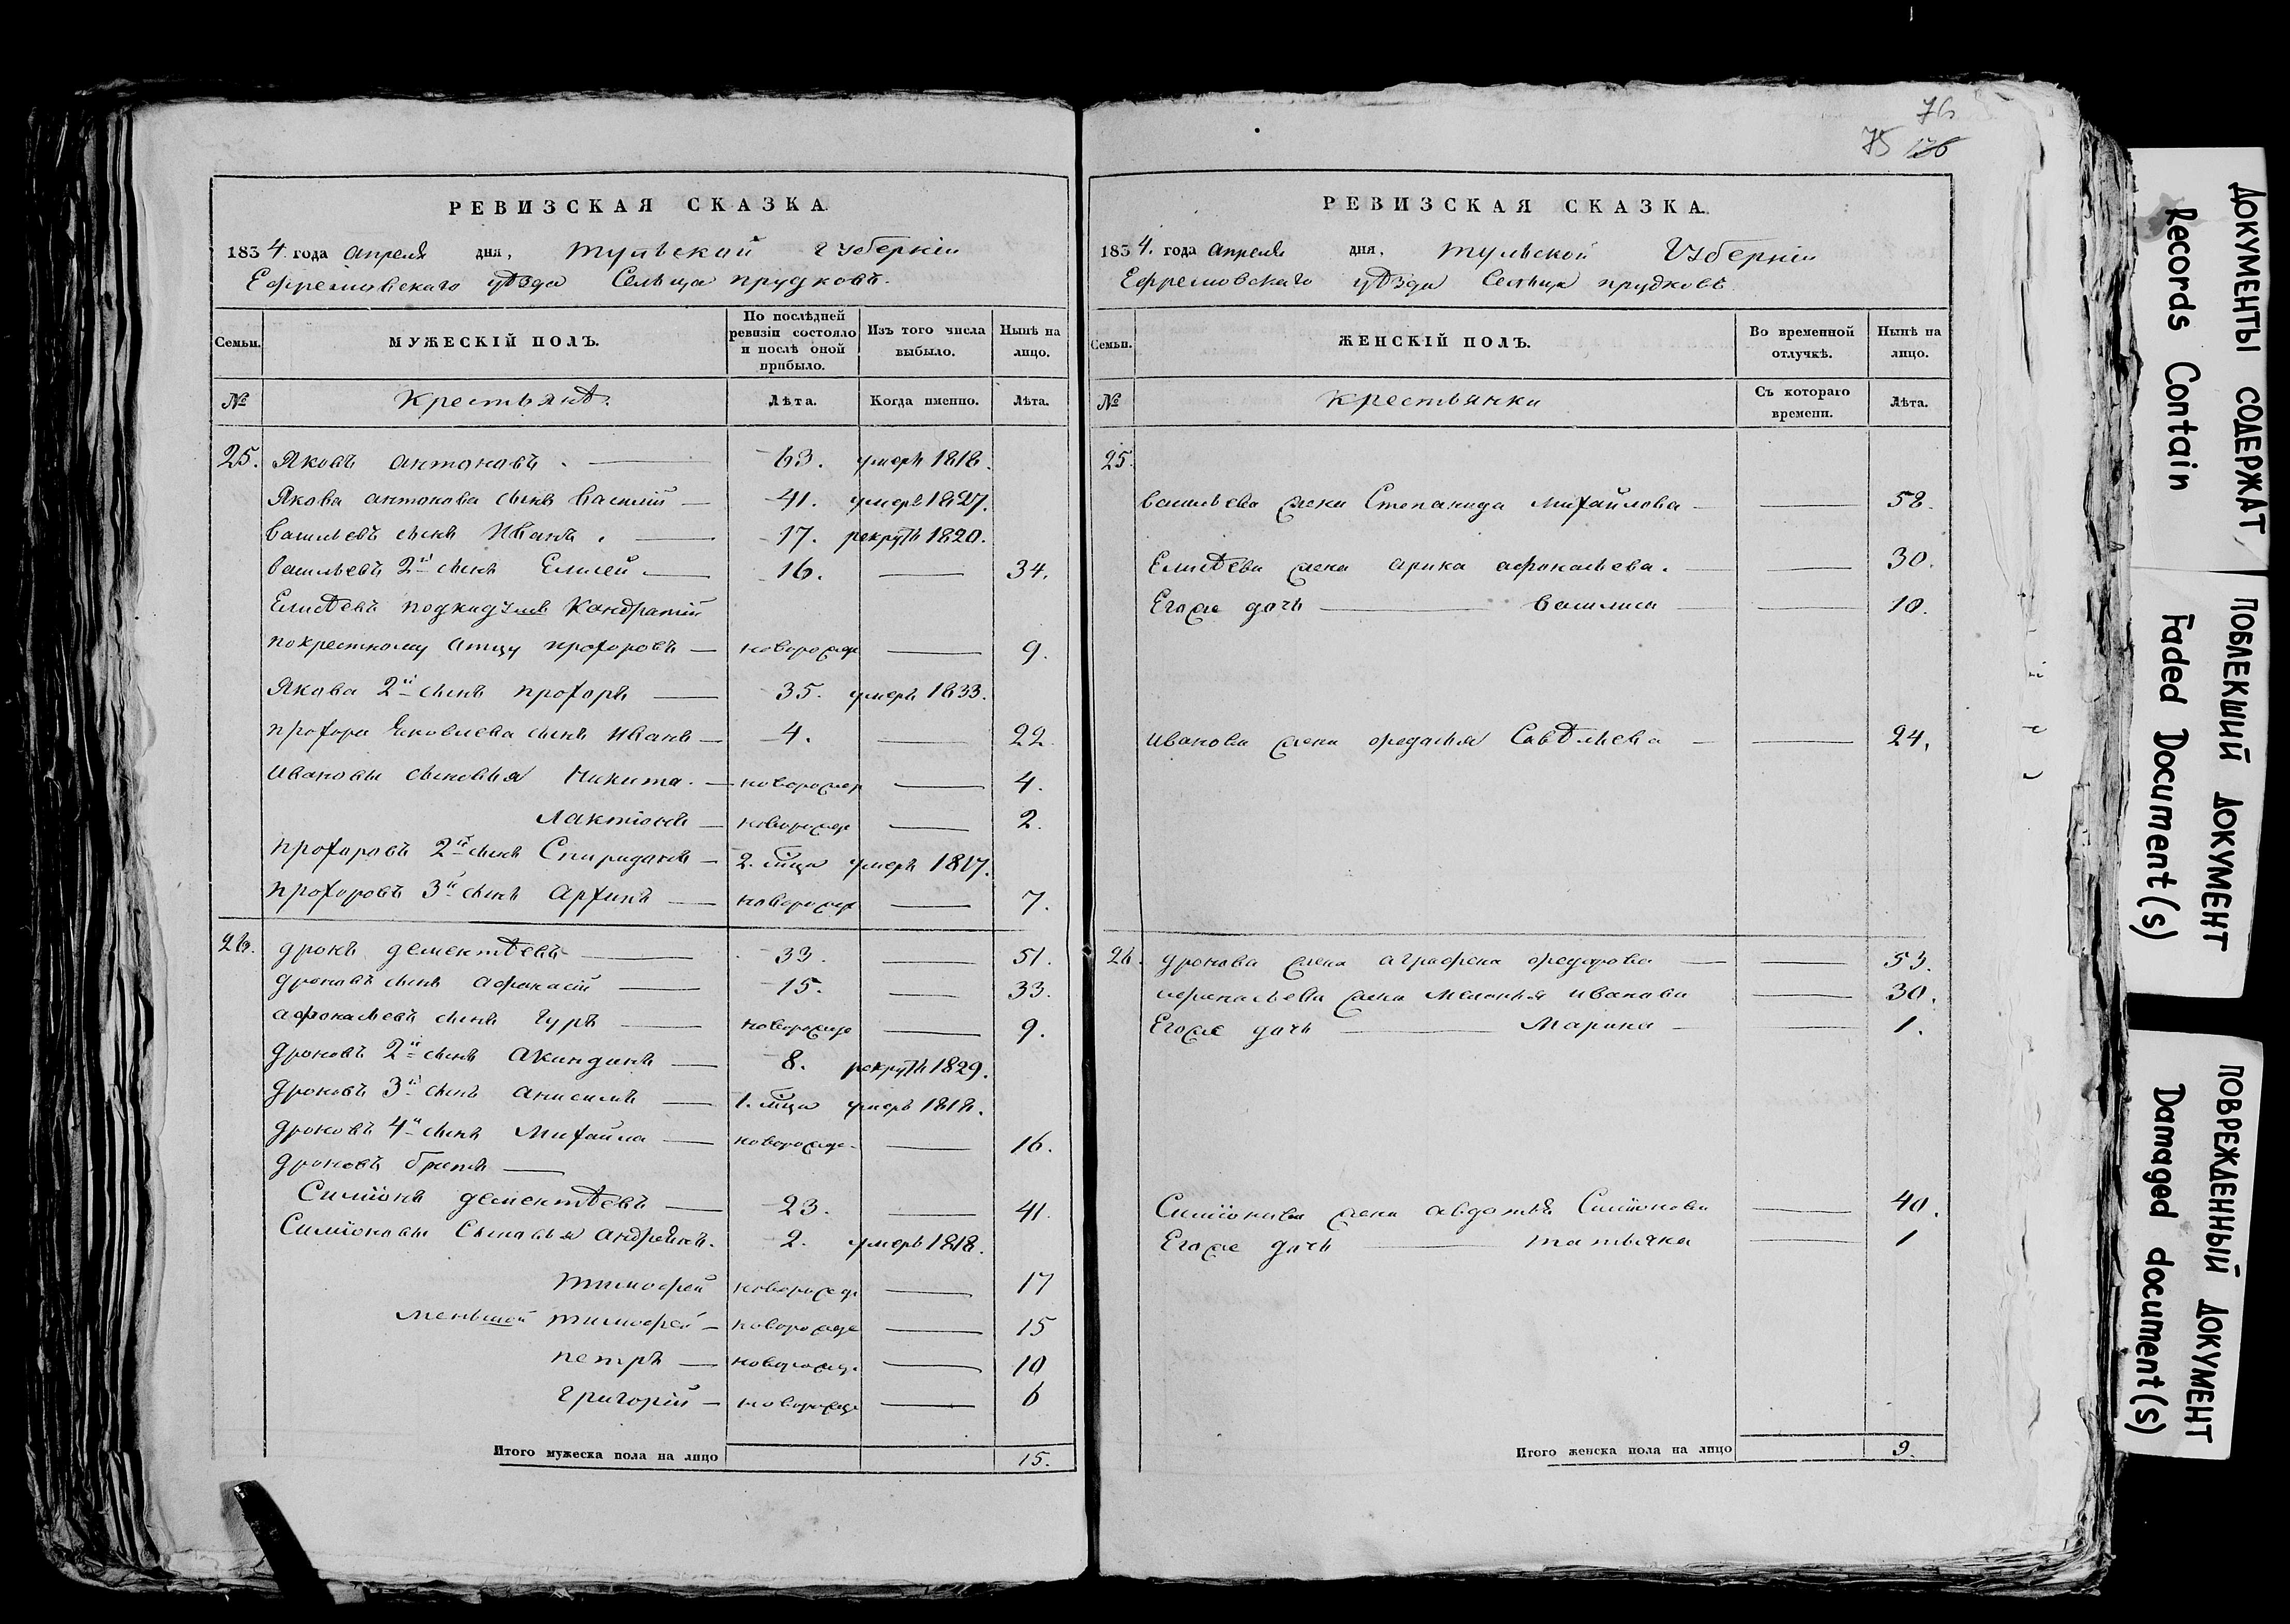 РЕВИЗСКАЯ СКАЗКА
1834 года апреля дня, тульской губернiи
Ефремовскаго уѣзда Сельца прудковъ.
Семьи. МУЖЕСКIЙ ПОЛЪ. По послѣдней ревизiи состояло и послѣ оной прибыло. Изъ того числа выбыло. Нынѣ на лицо.
№ Крестьянѣ. Лѣта. Когда именно. Лѣта.
25. Яковъ антоновъ. 63. умеръ 1818.
Якова антонова сынъ василiй 41. умеръ 1827.
васильевъ сынъ Иванъ. 17. рекрутъ 1820.
васильевъ 2й сынъ Елисей 16. 34.
Елисѣевъ подкидушъ Кандратiй
покрестному отцу прохоровъ новорожде 9.
Якова 2й сынъ прохоръ 35. умеръ 1833.
прохора Яковлева сынъ Иванъ 4. 22.
ивановы сыновья Никита. новорожде 4.
Лактiонъ новорожде 2.
прохоровъ 2й сынъ Спиридонъ 2. мца умеръ 1817.
прохоровъ 3й сынъ архипъ новорожде 7.
26. дронъ дементѣевъ 33. 51.
дроновъ сынъ афонасiй 15. 33.
афонасьевъ сынъ Гуръ новорожде 9.
дроновъ 2й сынъ акиндинъ 8. рекрутъ 1829.
дроновъ 3й сынъ анисимъ 1. мца умеръ 1818.
дроновъ 4й сынъ Михайла новорожде 16.
дроновъ братъ
Симiонъ дементѣевъ 23. 41.
Симiоновы Сыновья андреянъ. 2. умеръ 1818.
тимофей новорожде 17
меньшой тимофей новорожде 15
петръ новорожде 10
григорiй новорожде 6
Итого мужеска пола на лицо 15.
76
75 176
РЕВИЗСКАЯ СКАЗКА.
1834. года апреля дня, тульской Губернiи
Ефремовскаго уѣзда Сельца прудковъ
Семьи. ЖЕНСКIЙ ПОЛЪ. Во временной отлучкѣ. Нынѣ на лицо.
№ крестьянки Съ котораго времени. Лѣта.
25.
васильева жена Степанида михайлова 58.
Елисѣева жена арина афонасьева. 30.
Егоже дочь василиса 10.
иванова жена федосья Савѣльева 24.
26. дронова жена аграфена федорова 53.
афонасьева жена меланья иванова 30.
Егоже дочь Марина 1.
Симiонова жена авдотья Симiонова 40.
Егоже дочь татьяна 1
Итого женска пола на лицо 9.
ДОКУМЕНТЫ СОДЕРЖАТ
Records Contain
ПОБЛЕКШИЙ ДОКУМЕНТ
Faded Document(s)
ПОВРЕЖДЕННЫЙ ДОКУМЕНТ
Damaged document(s)